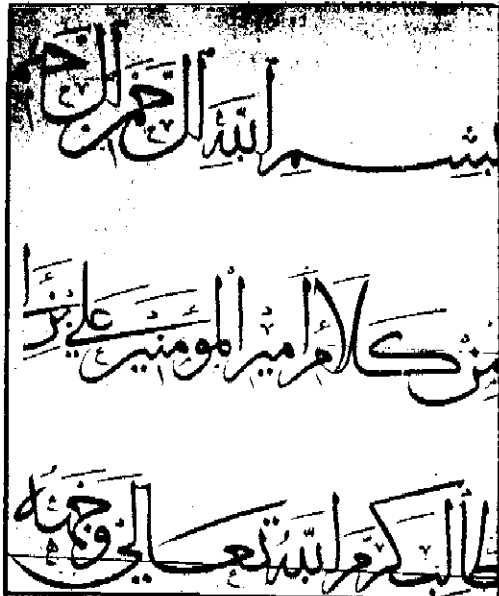 بسم الله الرحمن الرحيم
من كلام أمير المومنين علي بن ا
طالب كرم الله تعالى وجهه